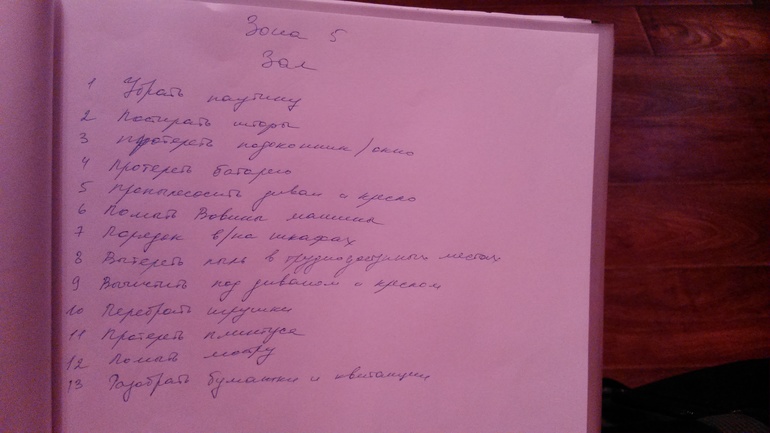 Зона 5
Зал
1 Убрать паутину
2 Постирать шторы
3 Протереть подоконник/окно
4 Протереть батарею
5 Пропылесосить диван и кресло
6 Помыть Вовины машины
7 Порядок в/на шкафах
8 Вытереть пыль в труднодоступных местах
9 Вычистить под диваном и креслом
10 Перебрать игрушки
11 Протереть плинтуса
12 Помыть
13 Разобрать бумажки и квитанции